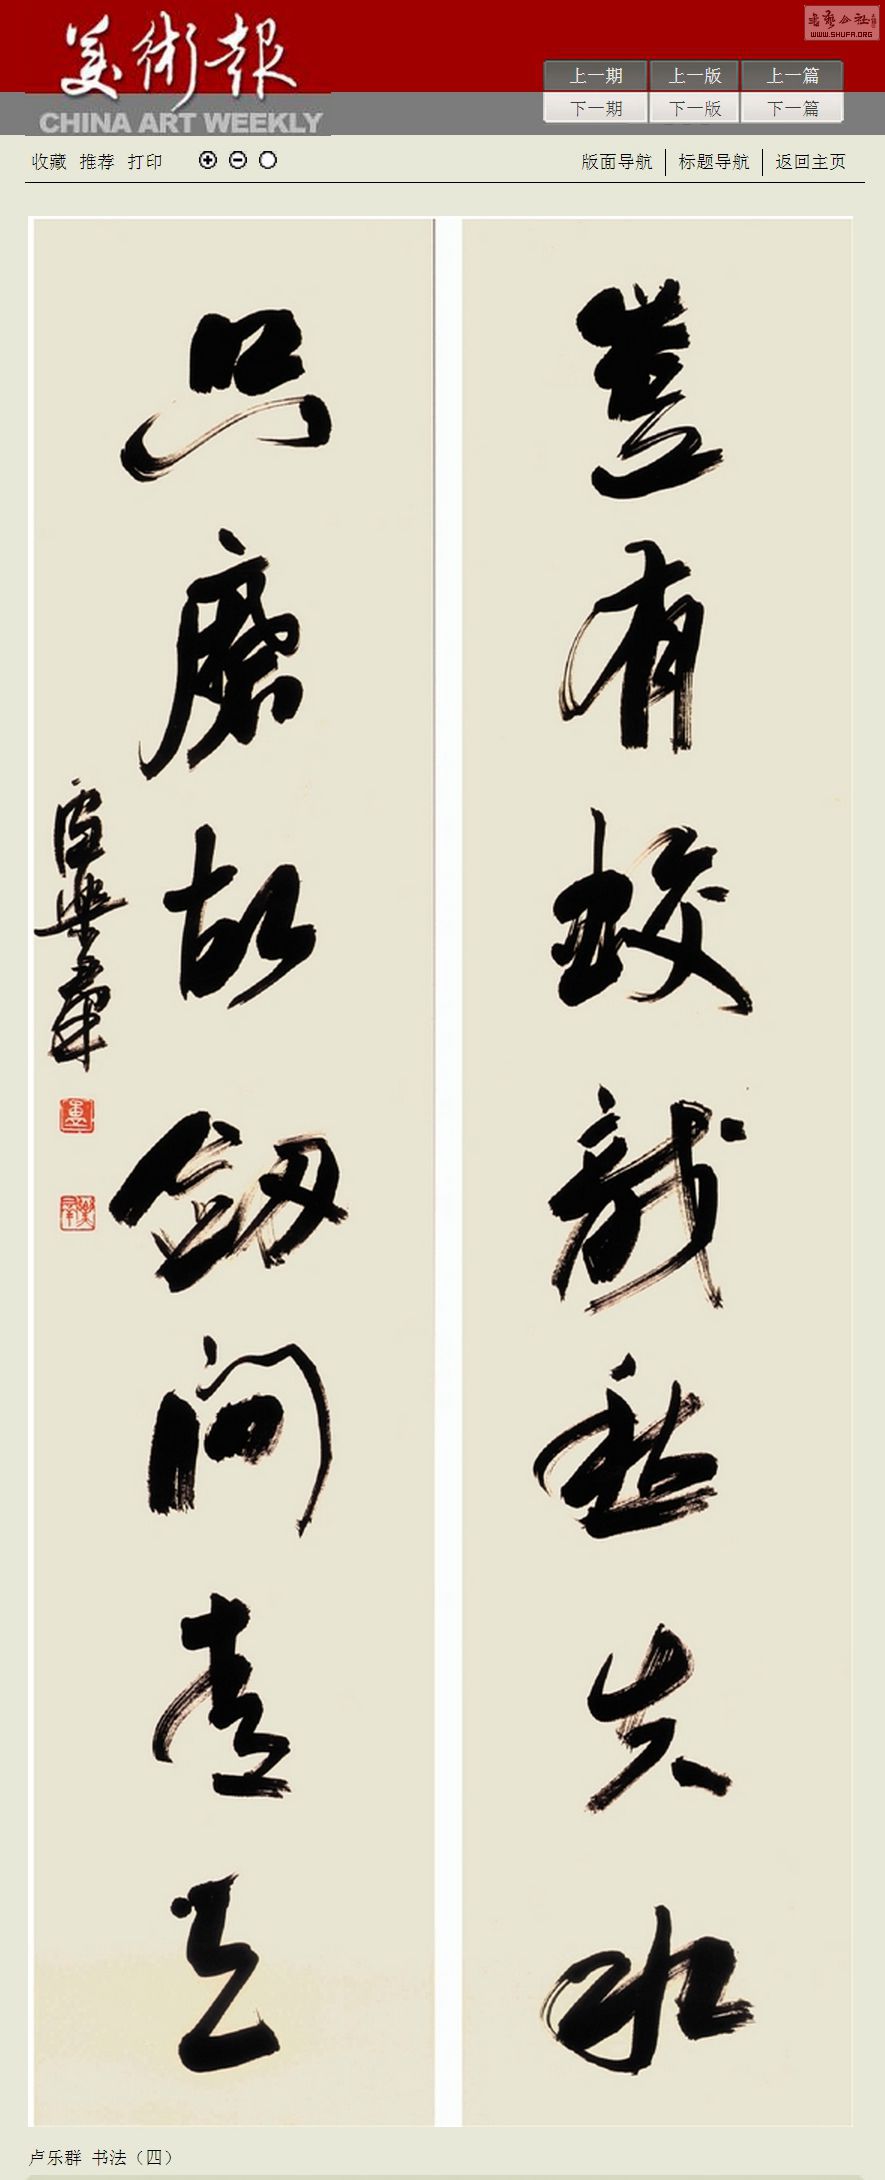 美術報
CHINA ART WEEKLY
書藝公社
WWW.SHUFA.ORG
上一期 上一版 上一篇
下一期 下一版 下一篇
收藏 推荐 打印
版面导航 标题导航 返回主页
豈有蛟龍愁失水
只磨故劒問青天
盧樂群
卢乐群 书法（四）